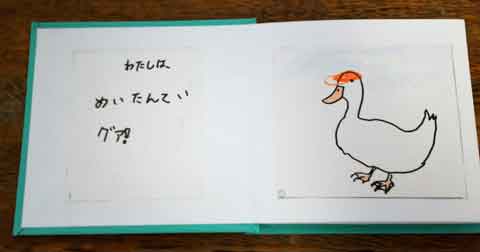 わたしは、
めいたんてい
グア!